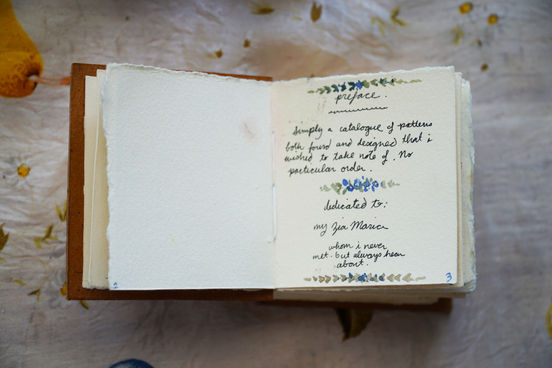 preface.
Simply a catalogue of patterns
both found and designed that i
wished to take note of. No
particular order.
dedicated to:
my Zia Maria
whom i never
met. but always hear
about.
2
3